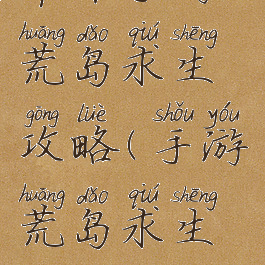 huāng dǎo qiú shēng
荒岛求生
gōng lüè shǒu yóu
攻略(手游
huāng dǎo qiú shēng
荒岛求生